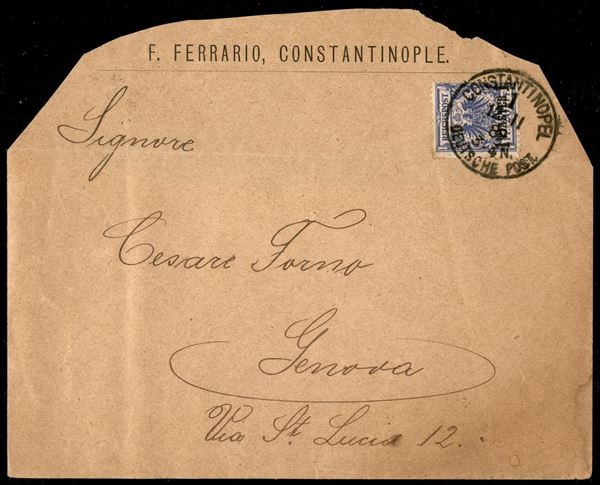 F. FERRARIO, CONSTANTINOPLE.
REICHSPOST
CONSTANTINOPEL 1
DEUTSCHE POST.
Signore
Cesare Torno
Genova
Via St. Lucia 12.